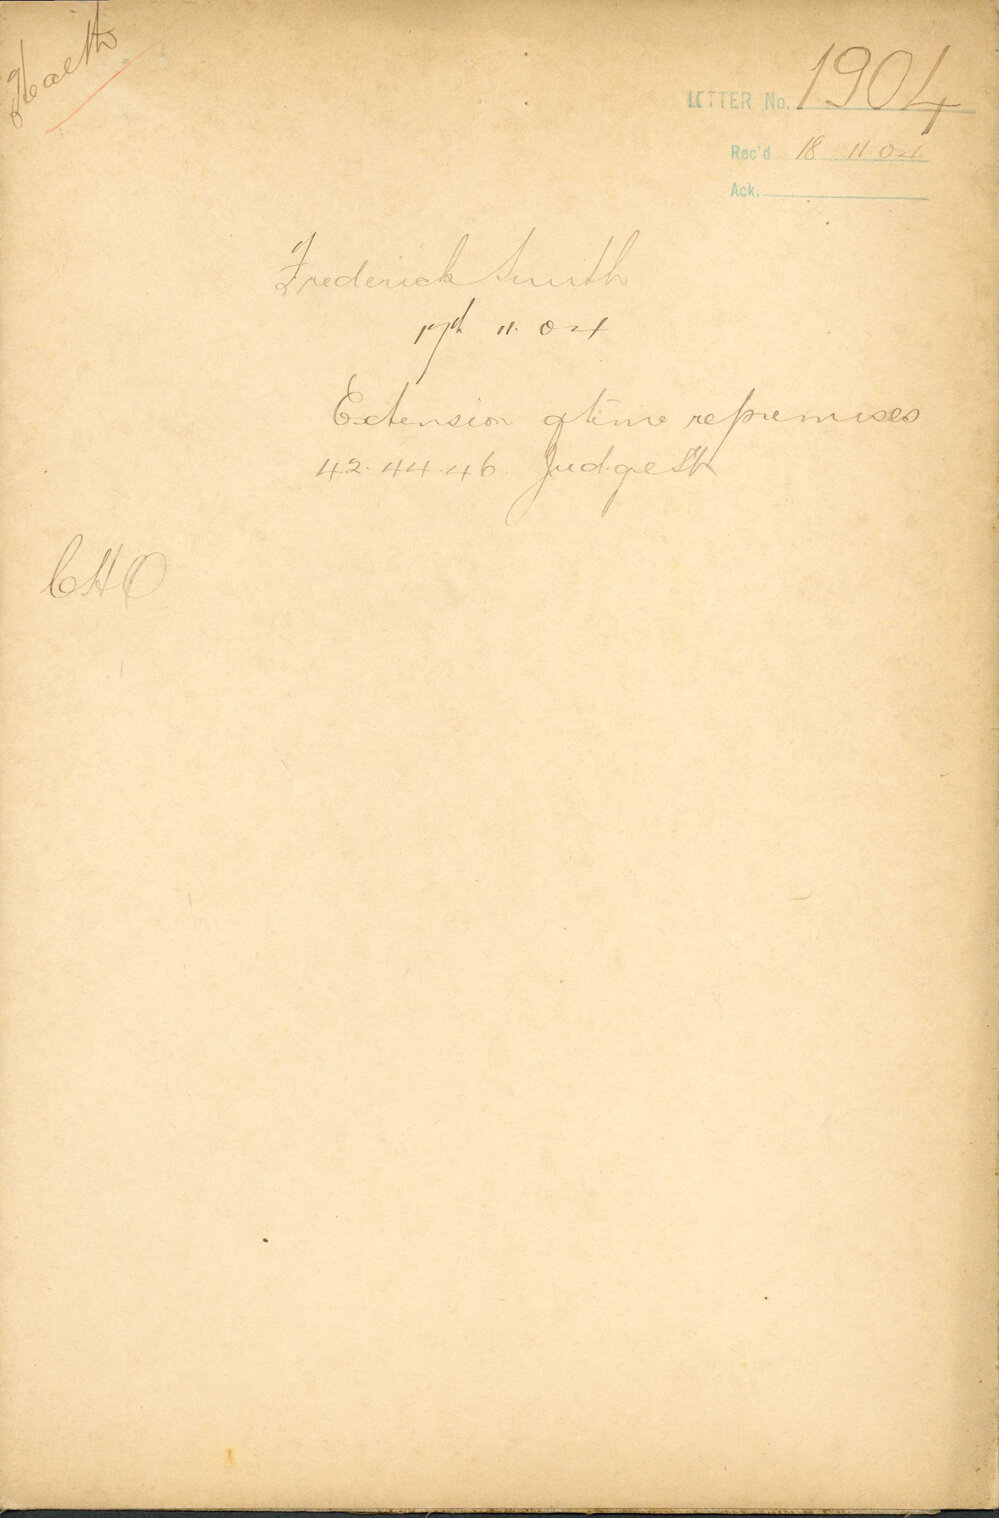 Health
LETTER No. 1904
Rec'd 18 11.04
Ack.
Frederick Smith
17th 11.04
Extension of time re premises
42.44.46. Judge St
CHO